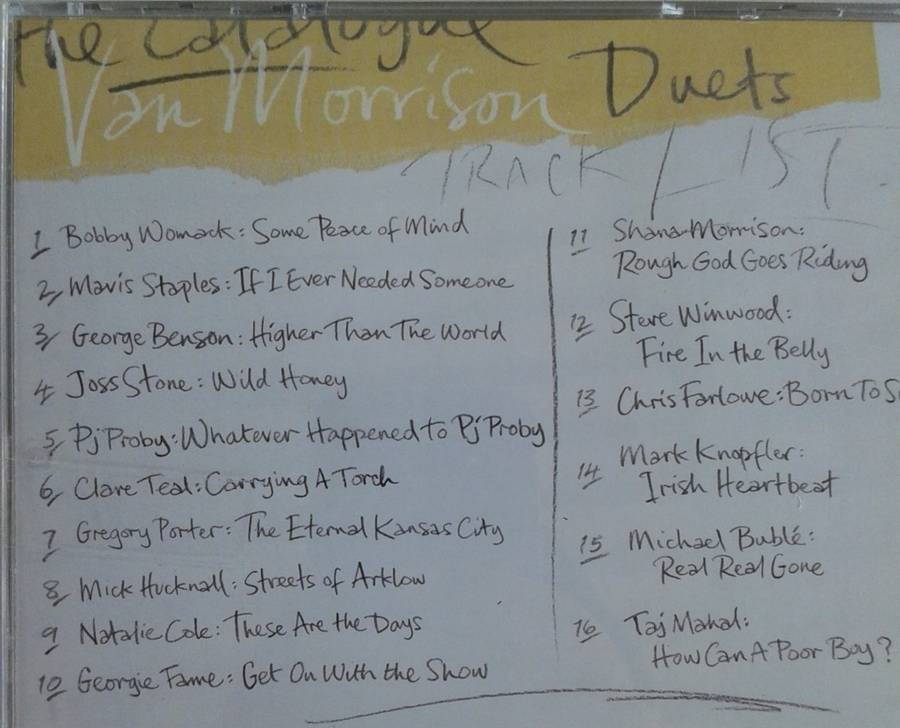 the Catalogue
Van Morrison Duets
TRACK LIST.
1 Bobby Womack: Some Peace of Mind
2, Mavis Staples: If I Ever Needed Someone
3, George Benson: Higher Than The World
4, Joss Stone: Wild Honey
5, Pj Proby: Whatever Happened to Pj Proby
6, Clare Teal: Carrying A Torch
7 Gregory Porter: The Eternal Kansas City
8, Mick Hucknall: Streets of Arklow
9 Natalie Cole: These Are the Days
10 Georgie Fame: Get On With the Show
11 Shana Morrison:
Rough God Goes Riding
12 Steve Winwood:
Fire In the Belly
13 Chris Farlowe: Born To S
14 Mark Knopfler:
Irish Heartbeat
15 Michael Bublé:
Real Real Gone
16 Taj Mahal:
How Can A Poor Boy?